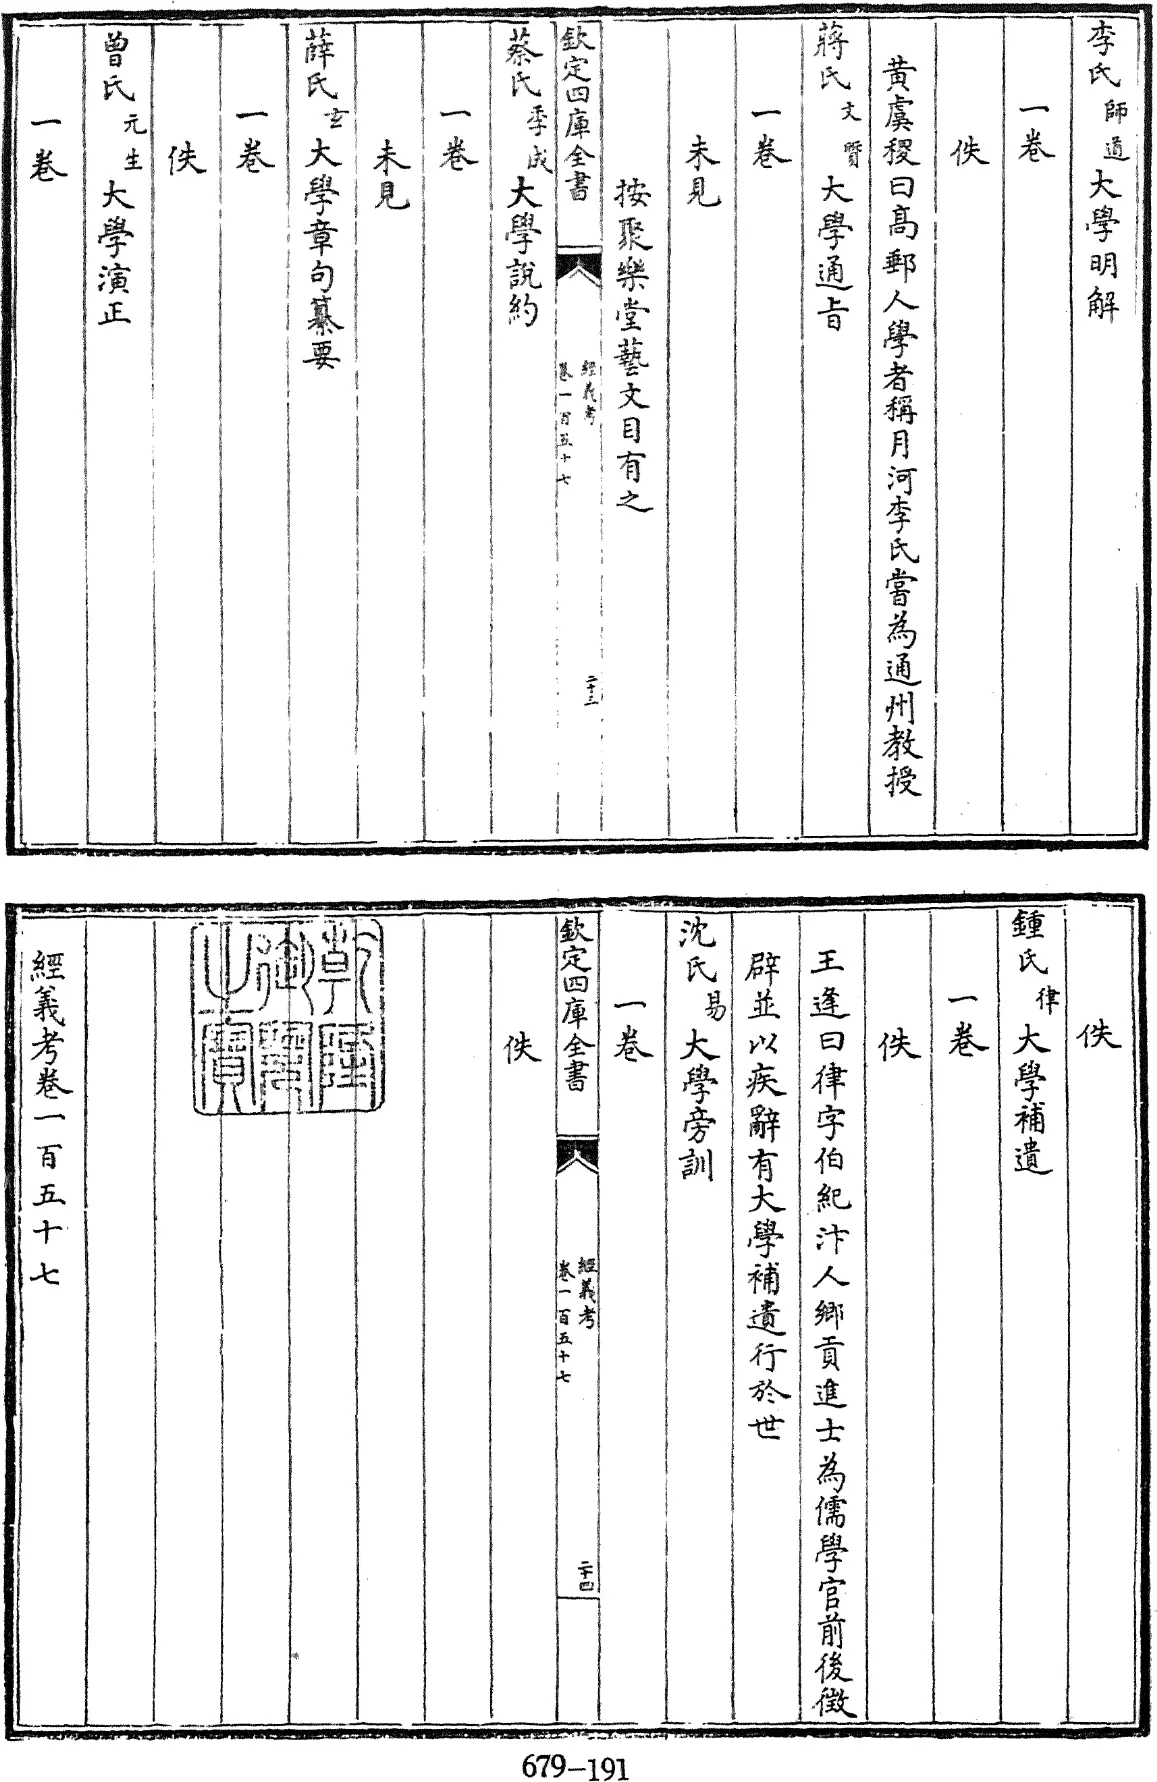 李氏師道大學明解
一卷
佚
黃虞稷曰高郵人學者稱月河李氏嘗為通州教授
蔣氏文質大學通旨
一卷
未見
按聚樂堂藝文目有之
欽定四庫全書
經義考
卷一百五十七
二十三
蔡氏季成大學說約
一卷
未見
薛氏玄大學章句纂要
一卷
佚
曾氏元生大學演正
一卷
佚
鍾氏律大學補遺
一卷
佚
王逢曰律字伯紀汴人鄉貢進士為儒學官前後徵
辟並以疾辭有大學補遺行於世
沈氏易大學旁訓
一卷
欽定四庫全書
經義考
卷一百五十七
二十四
佚
乾隆御覽之寶
經義考卷一百五十七
679-191